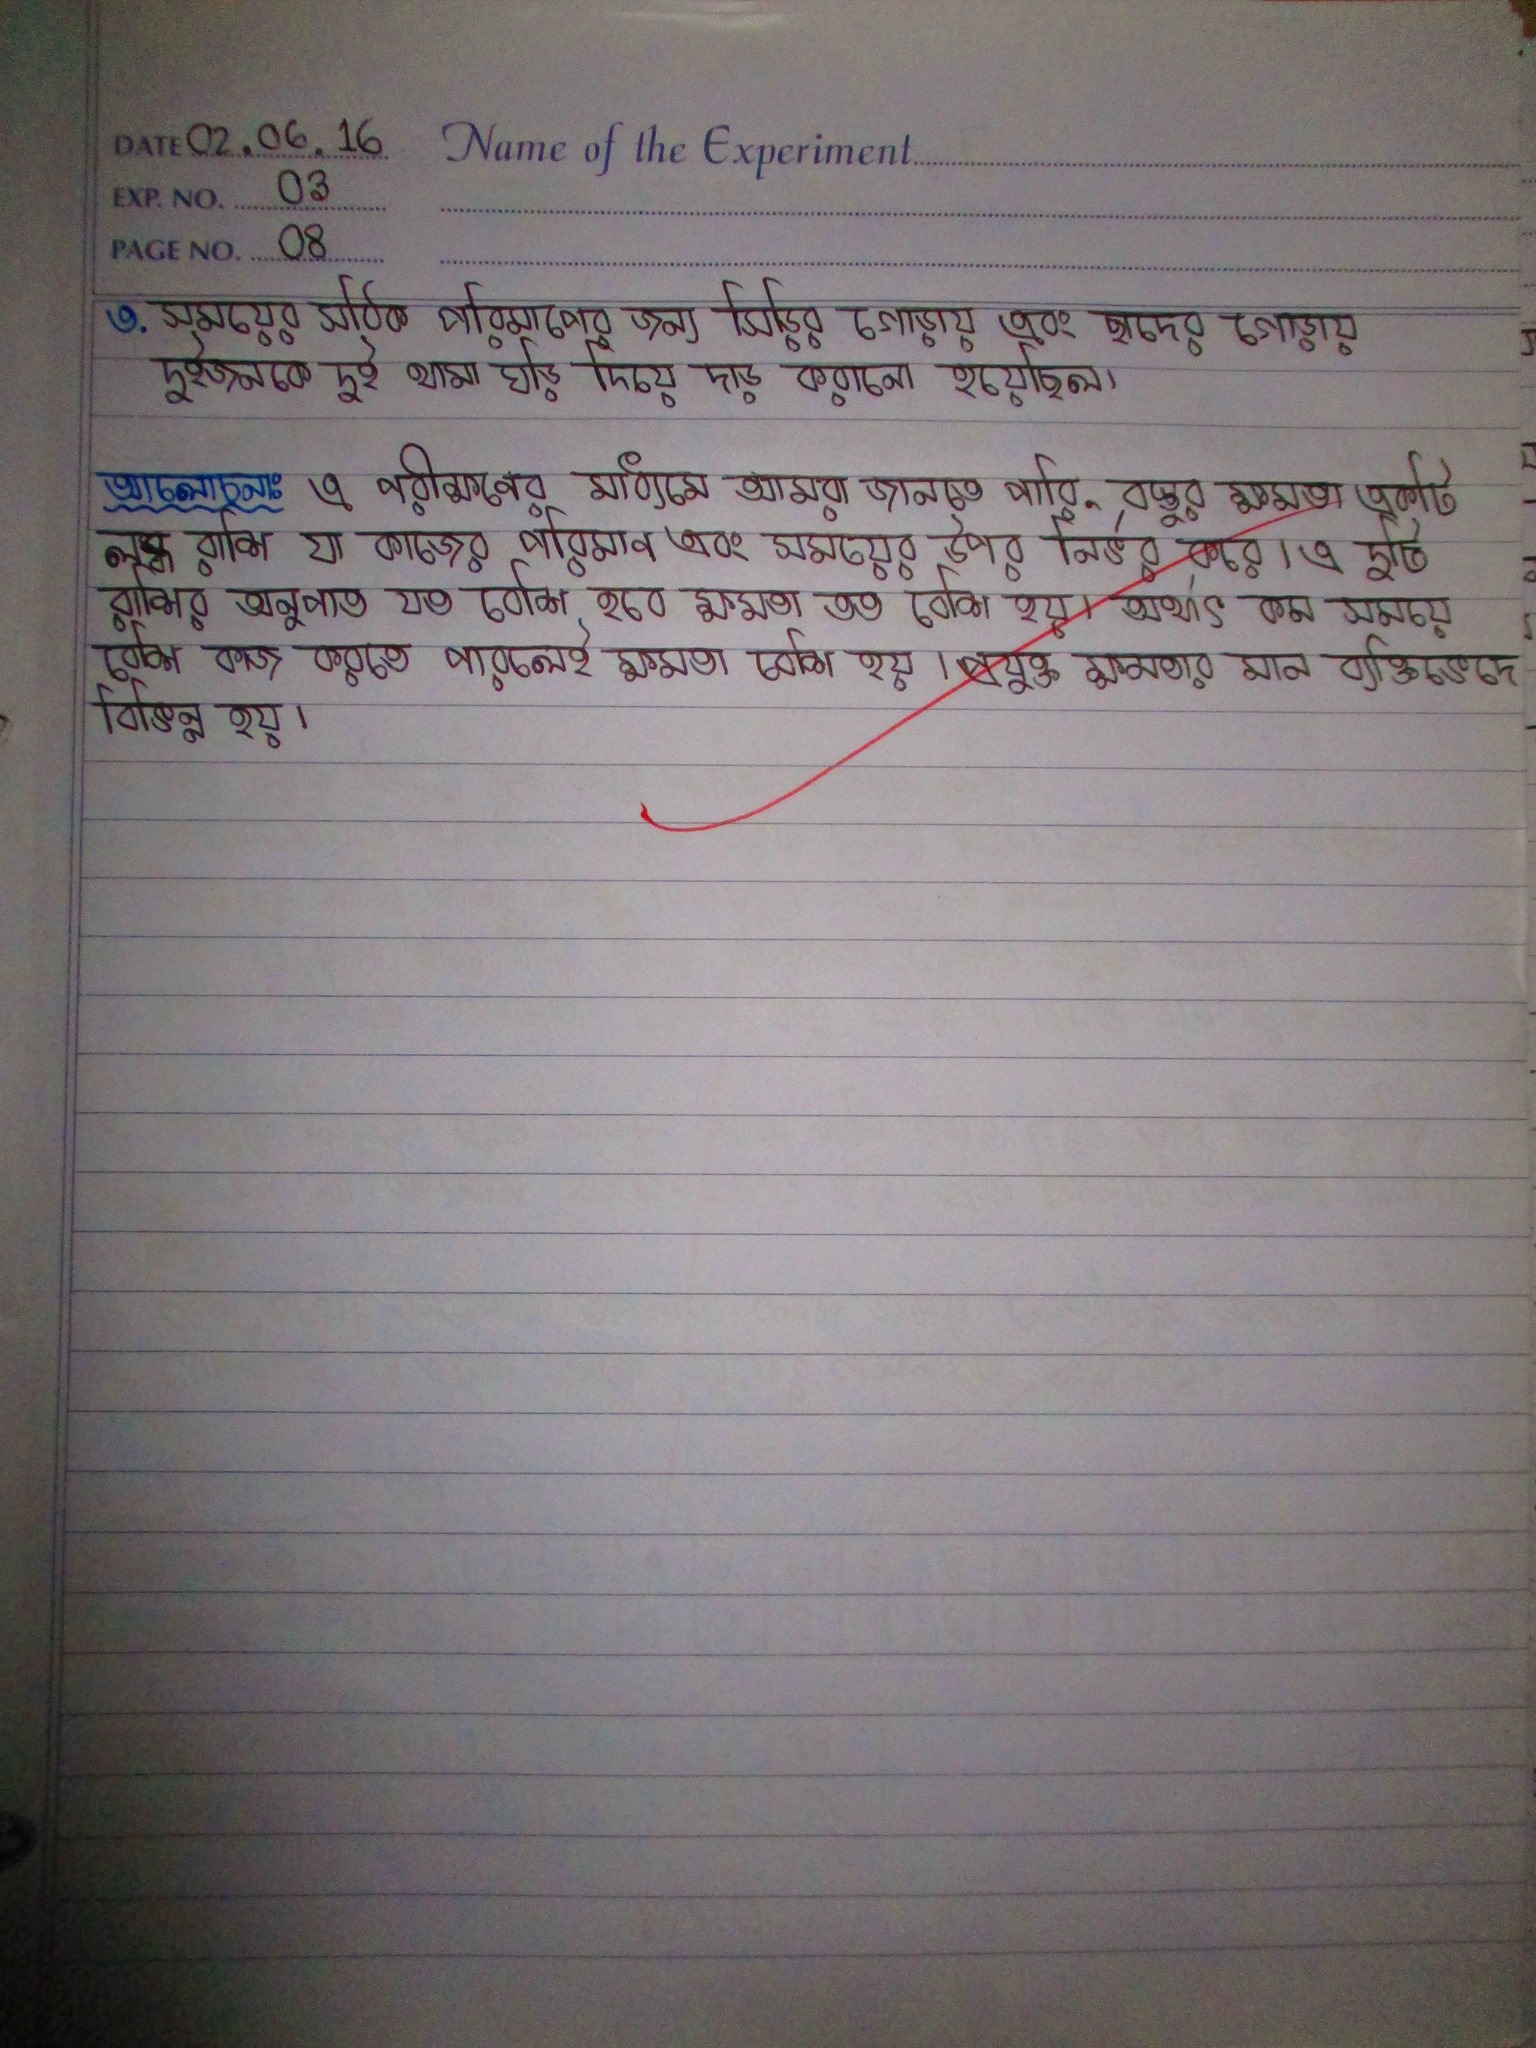 DATE 02.06.16 Name of the Experiment
EXP. NO. 03
PAGE NO. 08
৩. সময়ের সঠিক পরিমাপের জন্য সিড়ির গোড়ায় এবং ছাদের গোড়ায়
দুইজনকে দুই থামা ঘড়ি দিয়ে দাড় করানো হয়েছিল।
আলোচনাঃ এ পরীক্ষণের মাধ্যমে আমরা জানতে পারি, বস্তুর ক্ষমতা একটি
লব্ধ রাশি যা কাজের পরিমান এবং সময়ের উপর নির্ভর করে। এ দুটি
রাশির অনুপাত যত বেশি হবে ক্ষমতা তত বেশি হয়। অর্থাৎ কম সময়ে
বেশি কাজ করতে পারলেই ক্ষমতা বেশি হয়। প্রযুক্ত ক্ষমতার মান ব্যক্তিভেদে
বিভিন্ন হয়।